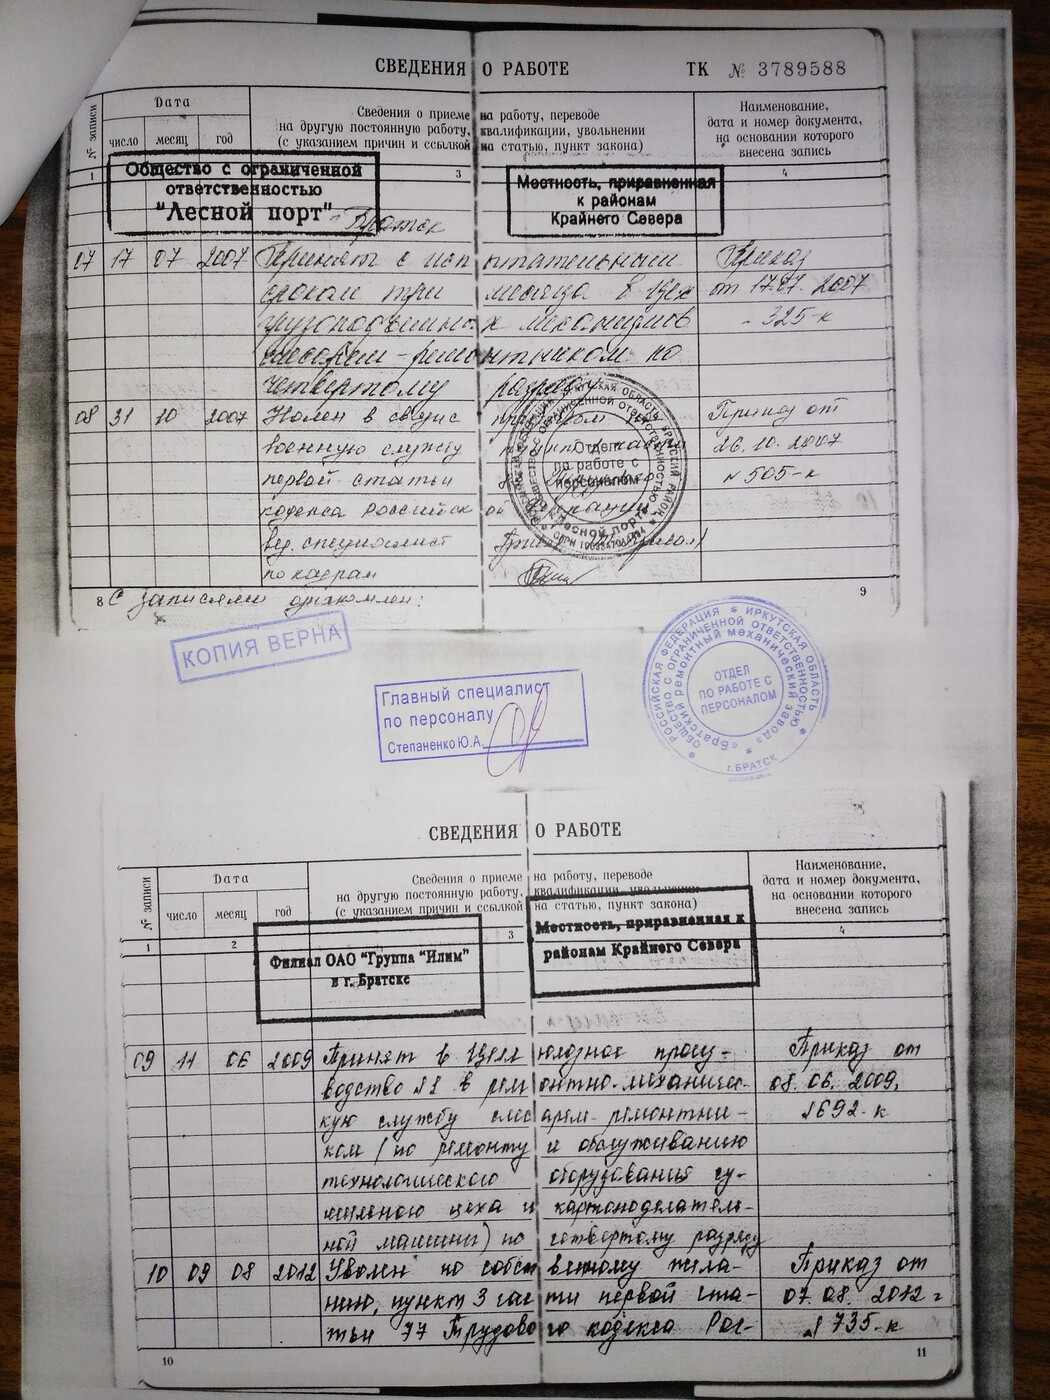 СВЕДЕНИЯ О РАБОТЕ ТК № 3789588
№ записи
Дата
число месяц год
Сведения о приеме на работу, переводе
на другую постоянную работу, квалификации, увольнении
(с указанием причин и ссылкой на статью, пункт закона)
Наименование,
дата и номер документа,
на основании которого
внесена запись
1 3 4
Общество с ограниченной
ответственностью
"Лесной порт"
г. Братск
Местность, приравненная
к районам
Крайнего Севера
07 17 07 2007 Принят с испытательным Приказ
сроком три месяца в цех от 17.07.2007
грузоподъемных механизмов - 325-к
слесарем-ремонтником по
четвертому разряду
08 31 10 2007 в связи Приказ от
военную службу 26.10.2007
первой статьи № 505-к
кодекса Российской
вед. специалист
по кадрам
Отдел
по работе с
персоналом
8 С записями ознакомлен: 9
КОПИЯ ВЕРНА
Главный специалист
по персоналу
Степаненко Ю.А.
РОССИЙСКАЯ ФЕДЕРАЦИЯ * ИРКУТСКАЯ ОБЛАСТЬ *
ОБЩЕСТВО С ОГРАНИЧЕННОЙ ОТВЕТСТВЕННОСТЬЮ
«Братский ремонтный механический завод»
ОТДЕЛ
ПО РАБОТЕ С
ПЕРСОНАЛОМ
г.БРАТСК
СВЕДЕНИЯ О РАБОТЕ
№ записи
Дата
число месяц год
Сведения о приеме на работу, переводе
на другую постоянную работу, квалификации, увольнении
(с указанием причин и ссылкой на статью, пункт закона)
Наименование,
дата и номер документа,
на основании которого
внесена запись
1 2 3 4
Филиал ОАО "Группа "Илим"
в г. Братске
Местность, приравненная к
районам Крайнего Севера
09 11 06 2009 Принят в Целлюлозное произ- Приказ от
водство №2 в ремонтно-механичес- 08.06.2009,
кую службу слесарем-ремонтни- №692-к
ком (по ремонту и обслуживанию
технологического оборудования су-
шильного цеха и картоноделатель-
ной машины) по четвертому разряду
10 09 08 2012 Уволен по собственному жела- Приказ от
нию, пункт 3 части первой ста- 07.08.2012 г
тьи 77 Трудового кодекса Рос- №735-к
10 11